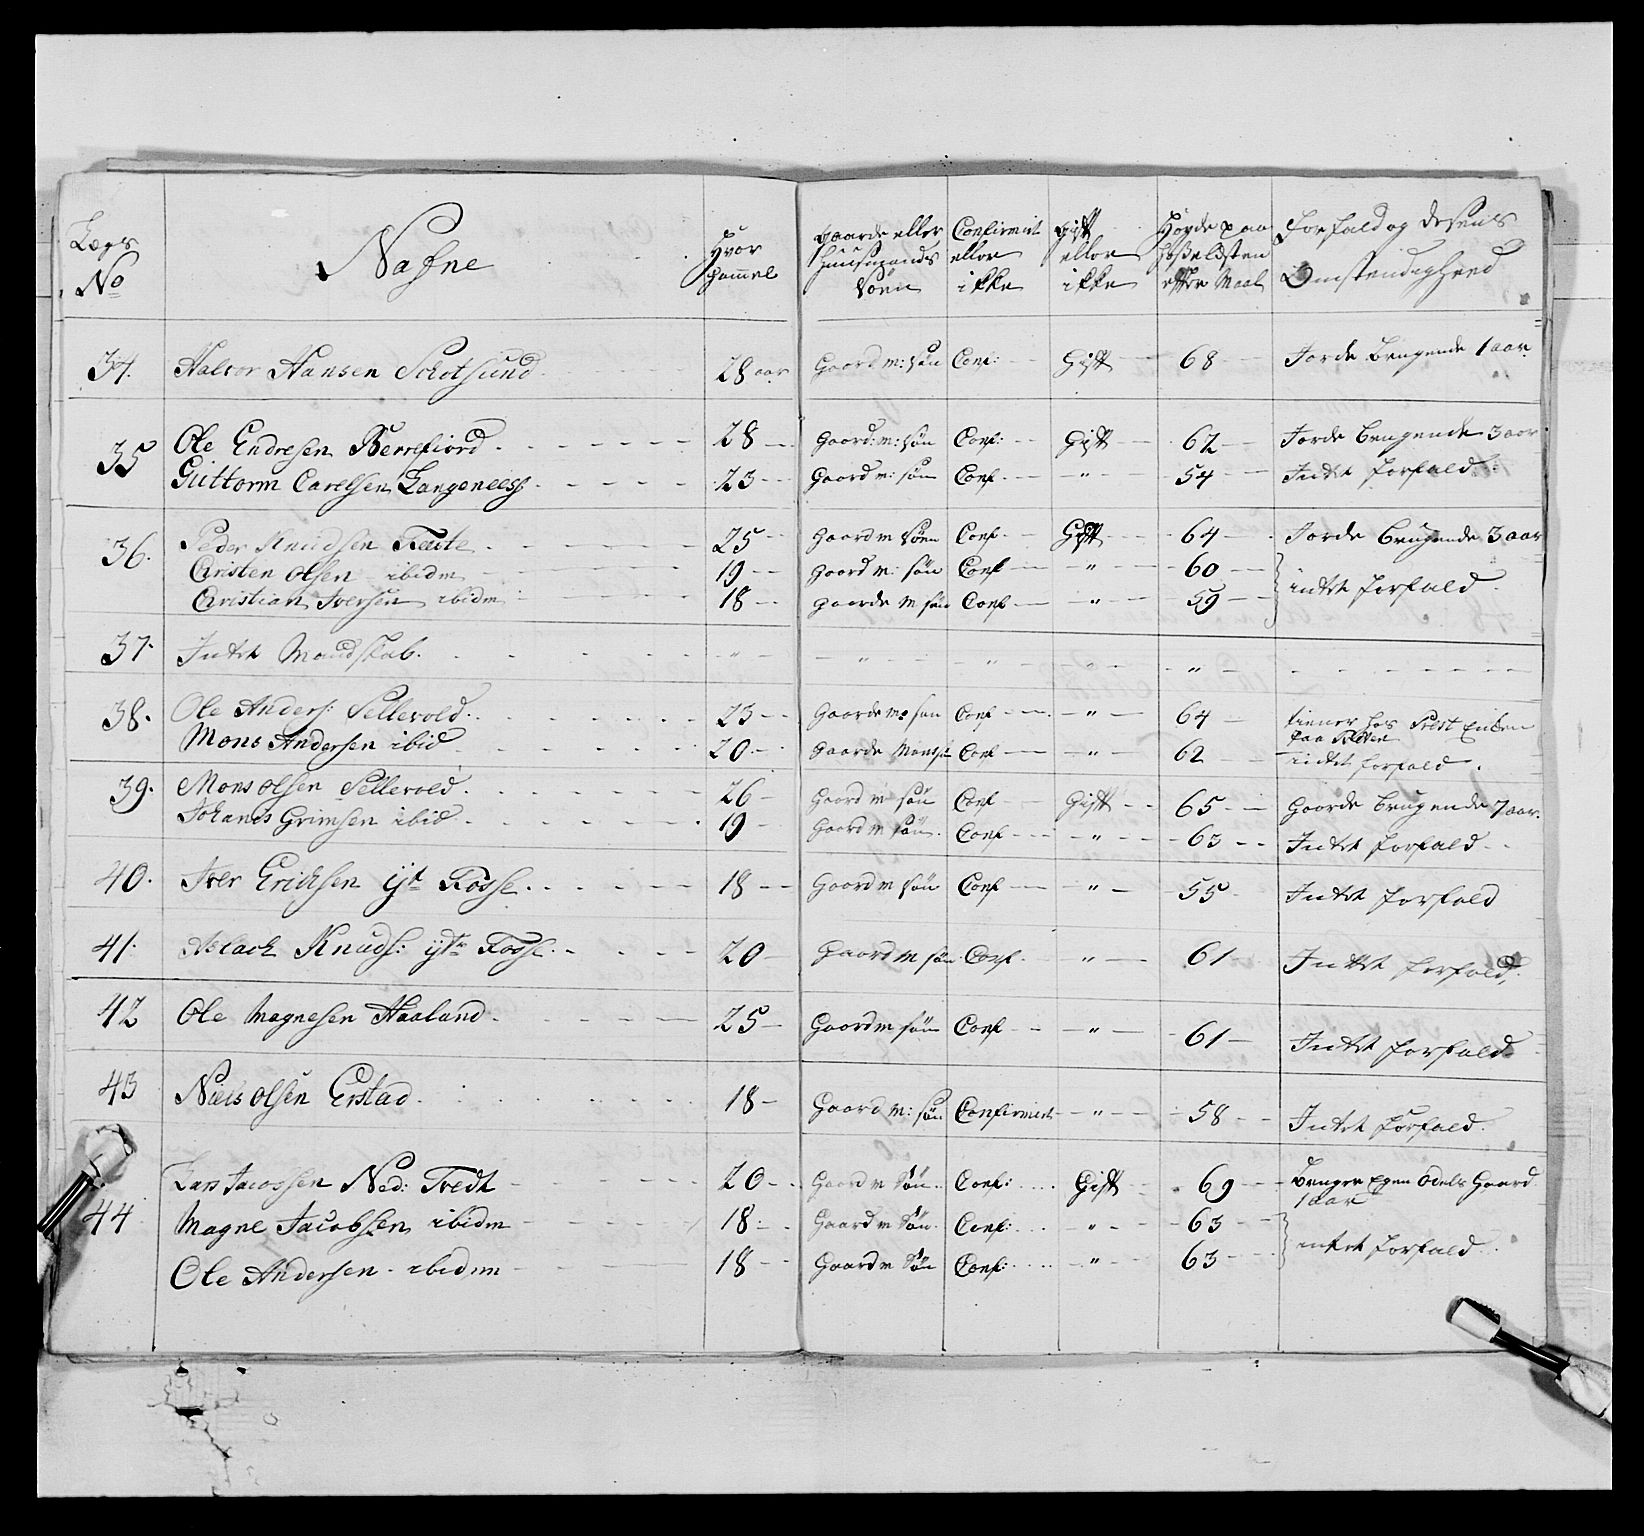 Lægs No | Nafne | Hvor Gammel | Gaarde eller Huusmands Søen | Confirmit eller ikke | Gift eller ikke | Høyde paa efter Maal | Forfald og desens Omstendighed
34. Halvor Hansen Schotsund 28 aar Gaord m: søn Conf: Gift 68 Jorde brugende 1 aar
35 Ole Endresen Berrefiord 28 Gaord: m: søn Conf: Gift 62 Jorde brugende 3 aar
Guttorm Carelsen Langenees 23 Gaord m: søn Conf. " 54 Intet forfald
36. Peder Knudsen Teite 25 Gaord m søen Conf. Gift 64 Jorde brugende 3 aar
Christen Olsen ibidm 19 Gaord m: søn Conf " 60 intet forfald
Christian Iversen ibidm 18 Gaarde m søn Conf " 59
37. Intet Mandskab. " " " " "
38. Ole Anders: Sellevold 23 Gaorde m: søn Conf " 64 tiener hos
Mons Andersen ibid 20 Gaarde Mans søn Conf " 62 intet forfald.
39. Mons Olsen Sellevold 26 Gaord m søn Conf Gift 65 Gaorde brugende 7 aar.
Johanes Grimsen ibid 19 Gaord m søn. Conf " 63 Intet forfald
40. Iver Erichsen yt Fosse 18 Gaord m søn Conf " 55 Intet forfald
41. Aslach Knuds: ytr Fosse 20 Gaord m søn Conf. " 61 Intet forfald
42 Ole Magnesen Haaland 25 Gaord m søn Conf " 61 Intet forfald
43 Niels Olsen Erstad 18 Gaord m: søn Confirmert " 58 Intet forfald.
44 Lars Jacobsen Ned: Tvedt 20 Gaord m Søn. Conf: Gift 69 Bruger Egen Odels Gaard 1 aar
Magne Jacobsen ibidm 18 Gaard m Søn. Conf: " 63 intet forfald
Ole Andersen ibidm 18 Gaard m Søn Conf: " 63